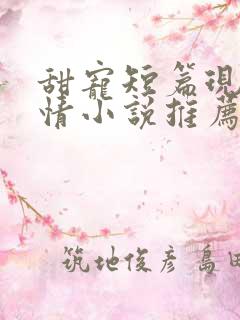 甜寵短篇現
情小說推薦
筑地俊彥 島田